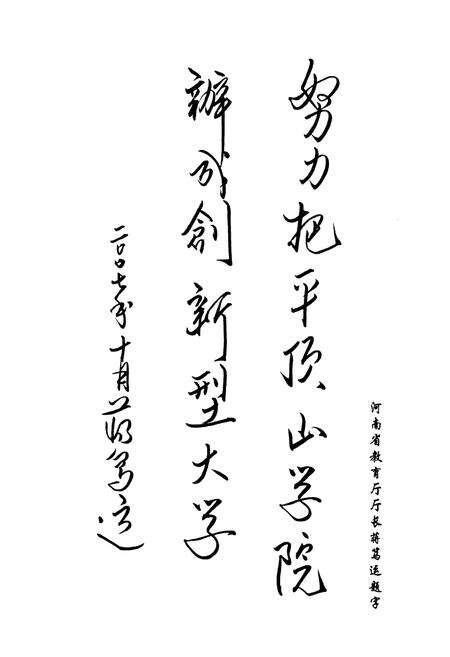 河南省教育厅厅长蒋笃运题字
努力把平顶山学院
辦成創新型大学
二〇〇七年十月蒋笃运